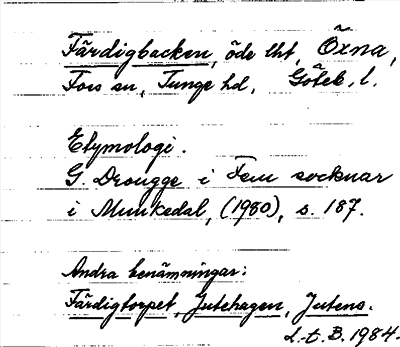 Färdigbacken, öde lht, Öxna,
Foss sn, Tunge hd, Göteb. l.
Etymologi.
G. Drougge i Fem socknar
i Munkedal, (1980), s. 187.
Andra benämningar:
Färdigtorpet, Jutehagen, Jutens.
L-t. B. 1984.